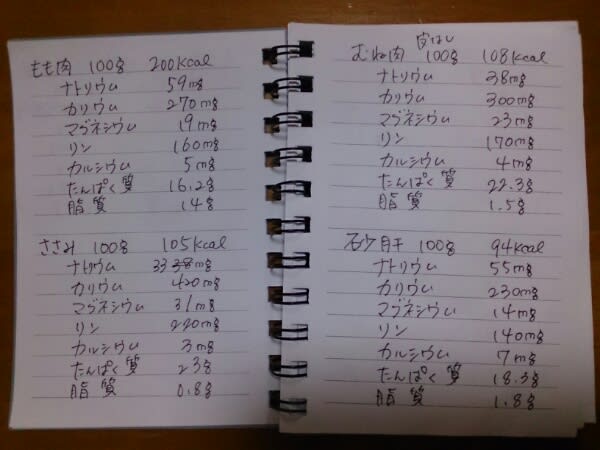 もも肉 100g 200kcal
ナトリウム 59mg
カリウム 270mg
マグネシウム 19mg
リン 160mg
カルシウム 5mg
たんぱく質 16.2g
脂質 14g
ささみ 100g 105kcal
ナトリウム 33 38mg
カリウム 420mg
マグネシウム 31mg
リン 220mg
カルシウム 3mg
たんぱく質 23g
脂質 0.8g
皮なし
むね肉 100g 108kcal
ナトリウム 38mg
カリウム 300mg
マグネシウム 23mg
リン 170mg
カルシウム 4mg
たんぱく質 22.3g
脂質 1.5g
砂肝 100g 94kcal
ナトリウム 55mg
カリウム 230mg
マグネシウム 14mg
リン 140mg
カルシウム 7mg
たんぱく質 18.3g
脂質 1.8g